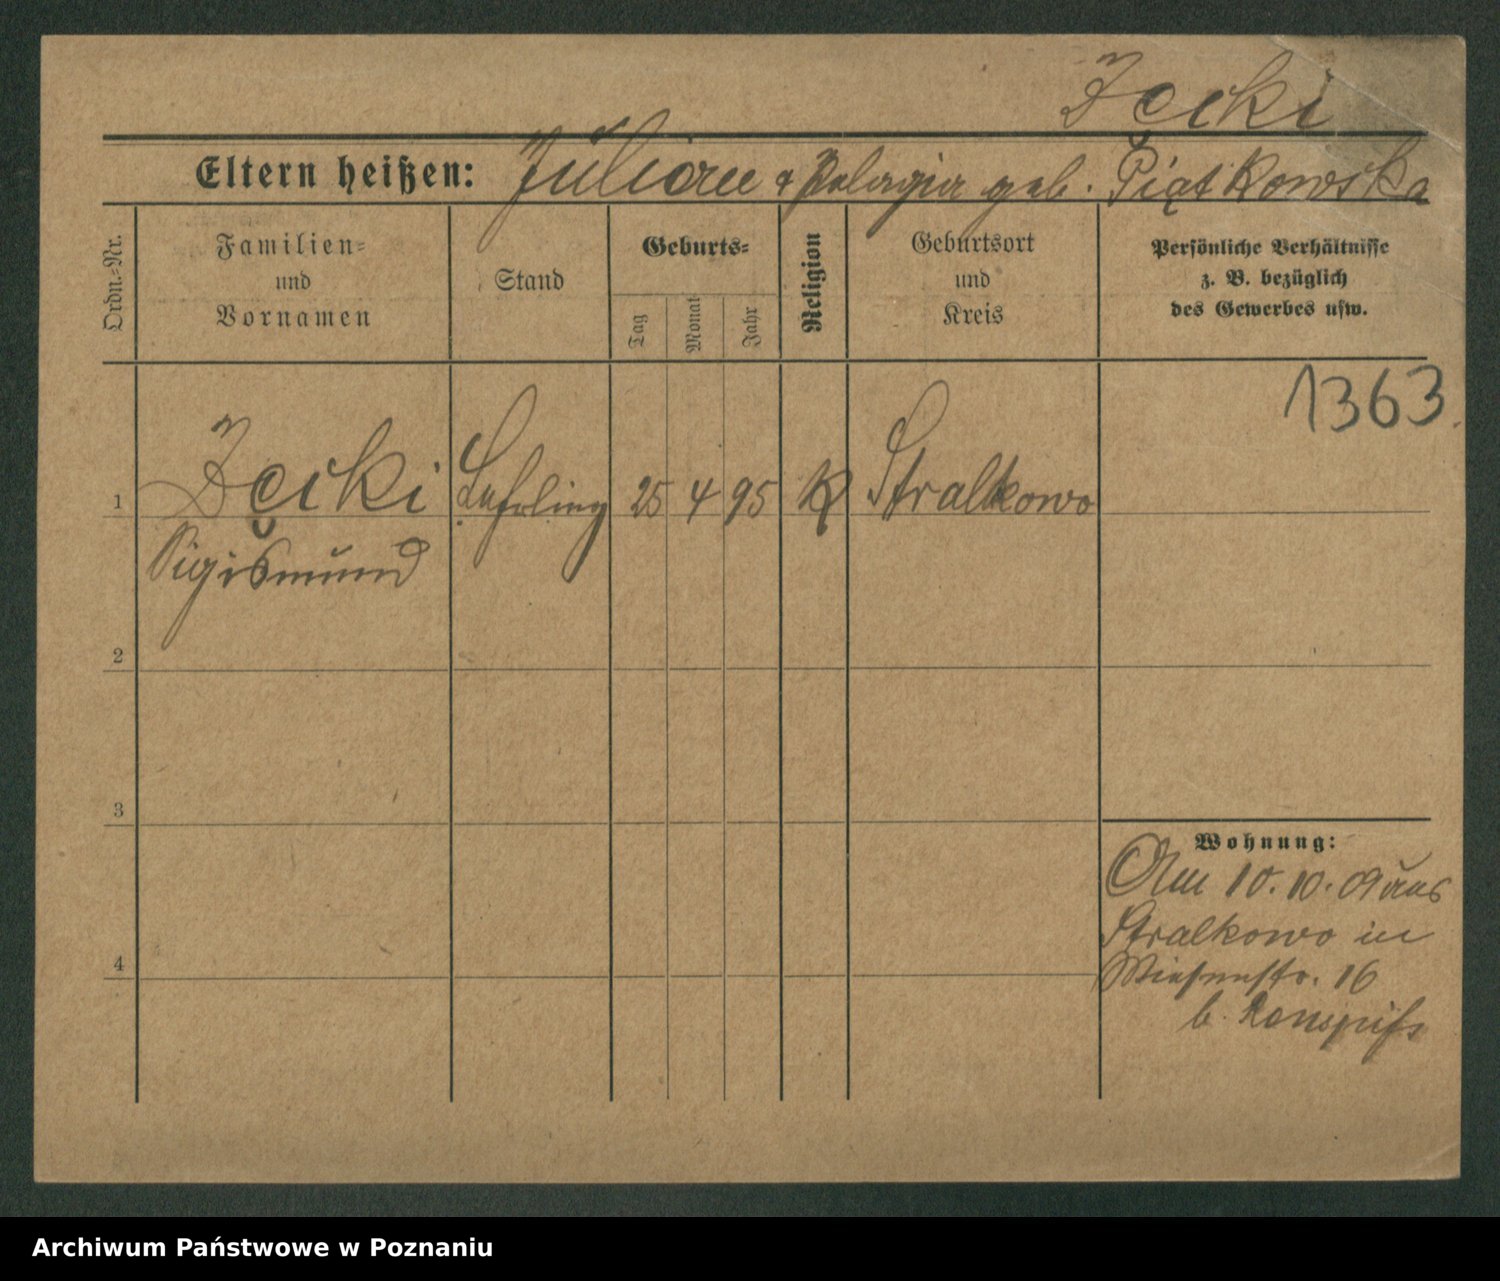 Zęcki
Eltern heißen: Julian & Pelagia geb. Piątkowska
Ordn.-Nr.
Familien-
und
Vornamen
Stand
Geburts-
Tag
Monat
Jahr
Religion
Geburtsort
und
Kreis
Persönliche Verhältnisse
z. B. bezüglich
des Gewerbes usw.
1363.
1 Zęcki Lehrling 25 4 95 K Stralkowo
Sigismund
2
3
4
Wohnung:
Am 10.10.09 aus
Stralkowo in
Wiesenstr. 16
b.
Archiwum Państwowe w Poznaniu